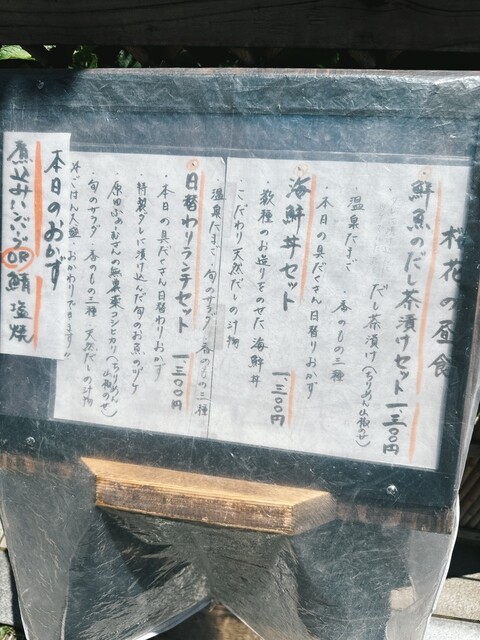 桜花の昼食
鮮魚のだし茶漬けセット 一、三〇〇円
だし茶漬け(ちりめん山椒のせ)
・温泉たまご ・香のもの三種
・本日の具だくさん日替りおかず
海鮮丼セット 一、三〇〇円
・数種のお造りをのせた海鮮丼
・こだわり天然だしの汁物
・温泉たまご・旬のサラダ・香のもの三種
日替わりランチセット 一、三〇〇円
・本日の具だくさん日替わりおかず
・特製ダレに漬け込んだ旬のお魚のヅケ
・原田ふぁーむさんの無農薬コシヒカリ(ちりめん山椒のせ)
・旬のサラダ・香のもの三種・天然だしの汁物
※ごはん大盛・おかわりできます!!
本日のおかず
煮込みハンバーグOR鯖塩焼